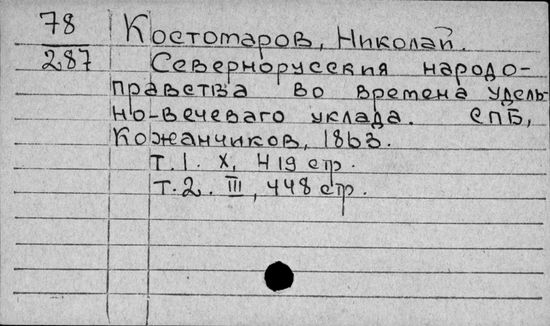 78 Костомаров, Николай.
287 Севернорусския народо-
правства во времена удель-
но-вечеваго уклада. СПБ,
Кожанчиков, 1863.
Т.1. X, 419 стр.
Т.2. III, 448 стр.